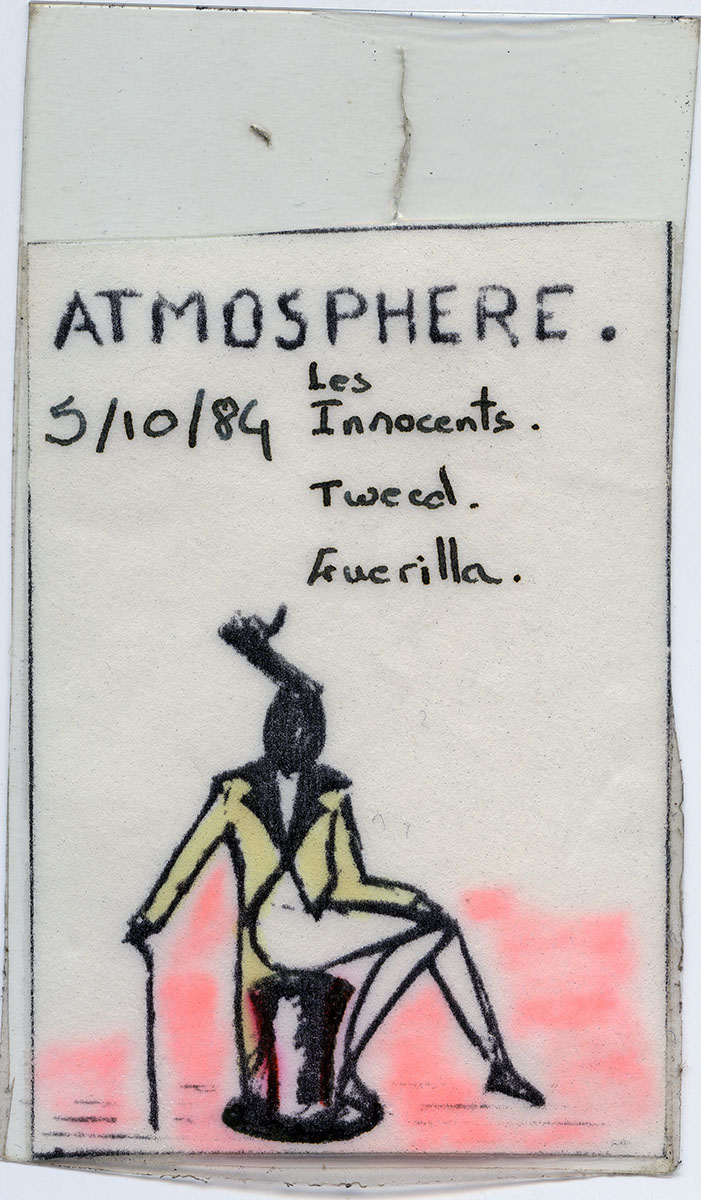 ATMOSPHERE.
5/10/84
Les
Innocents.
Tweed.
Guerilla.